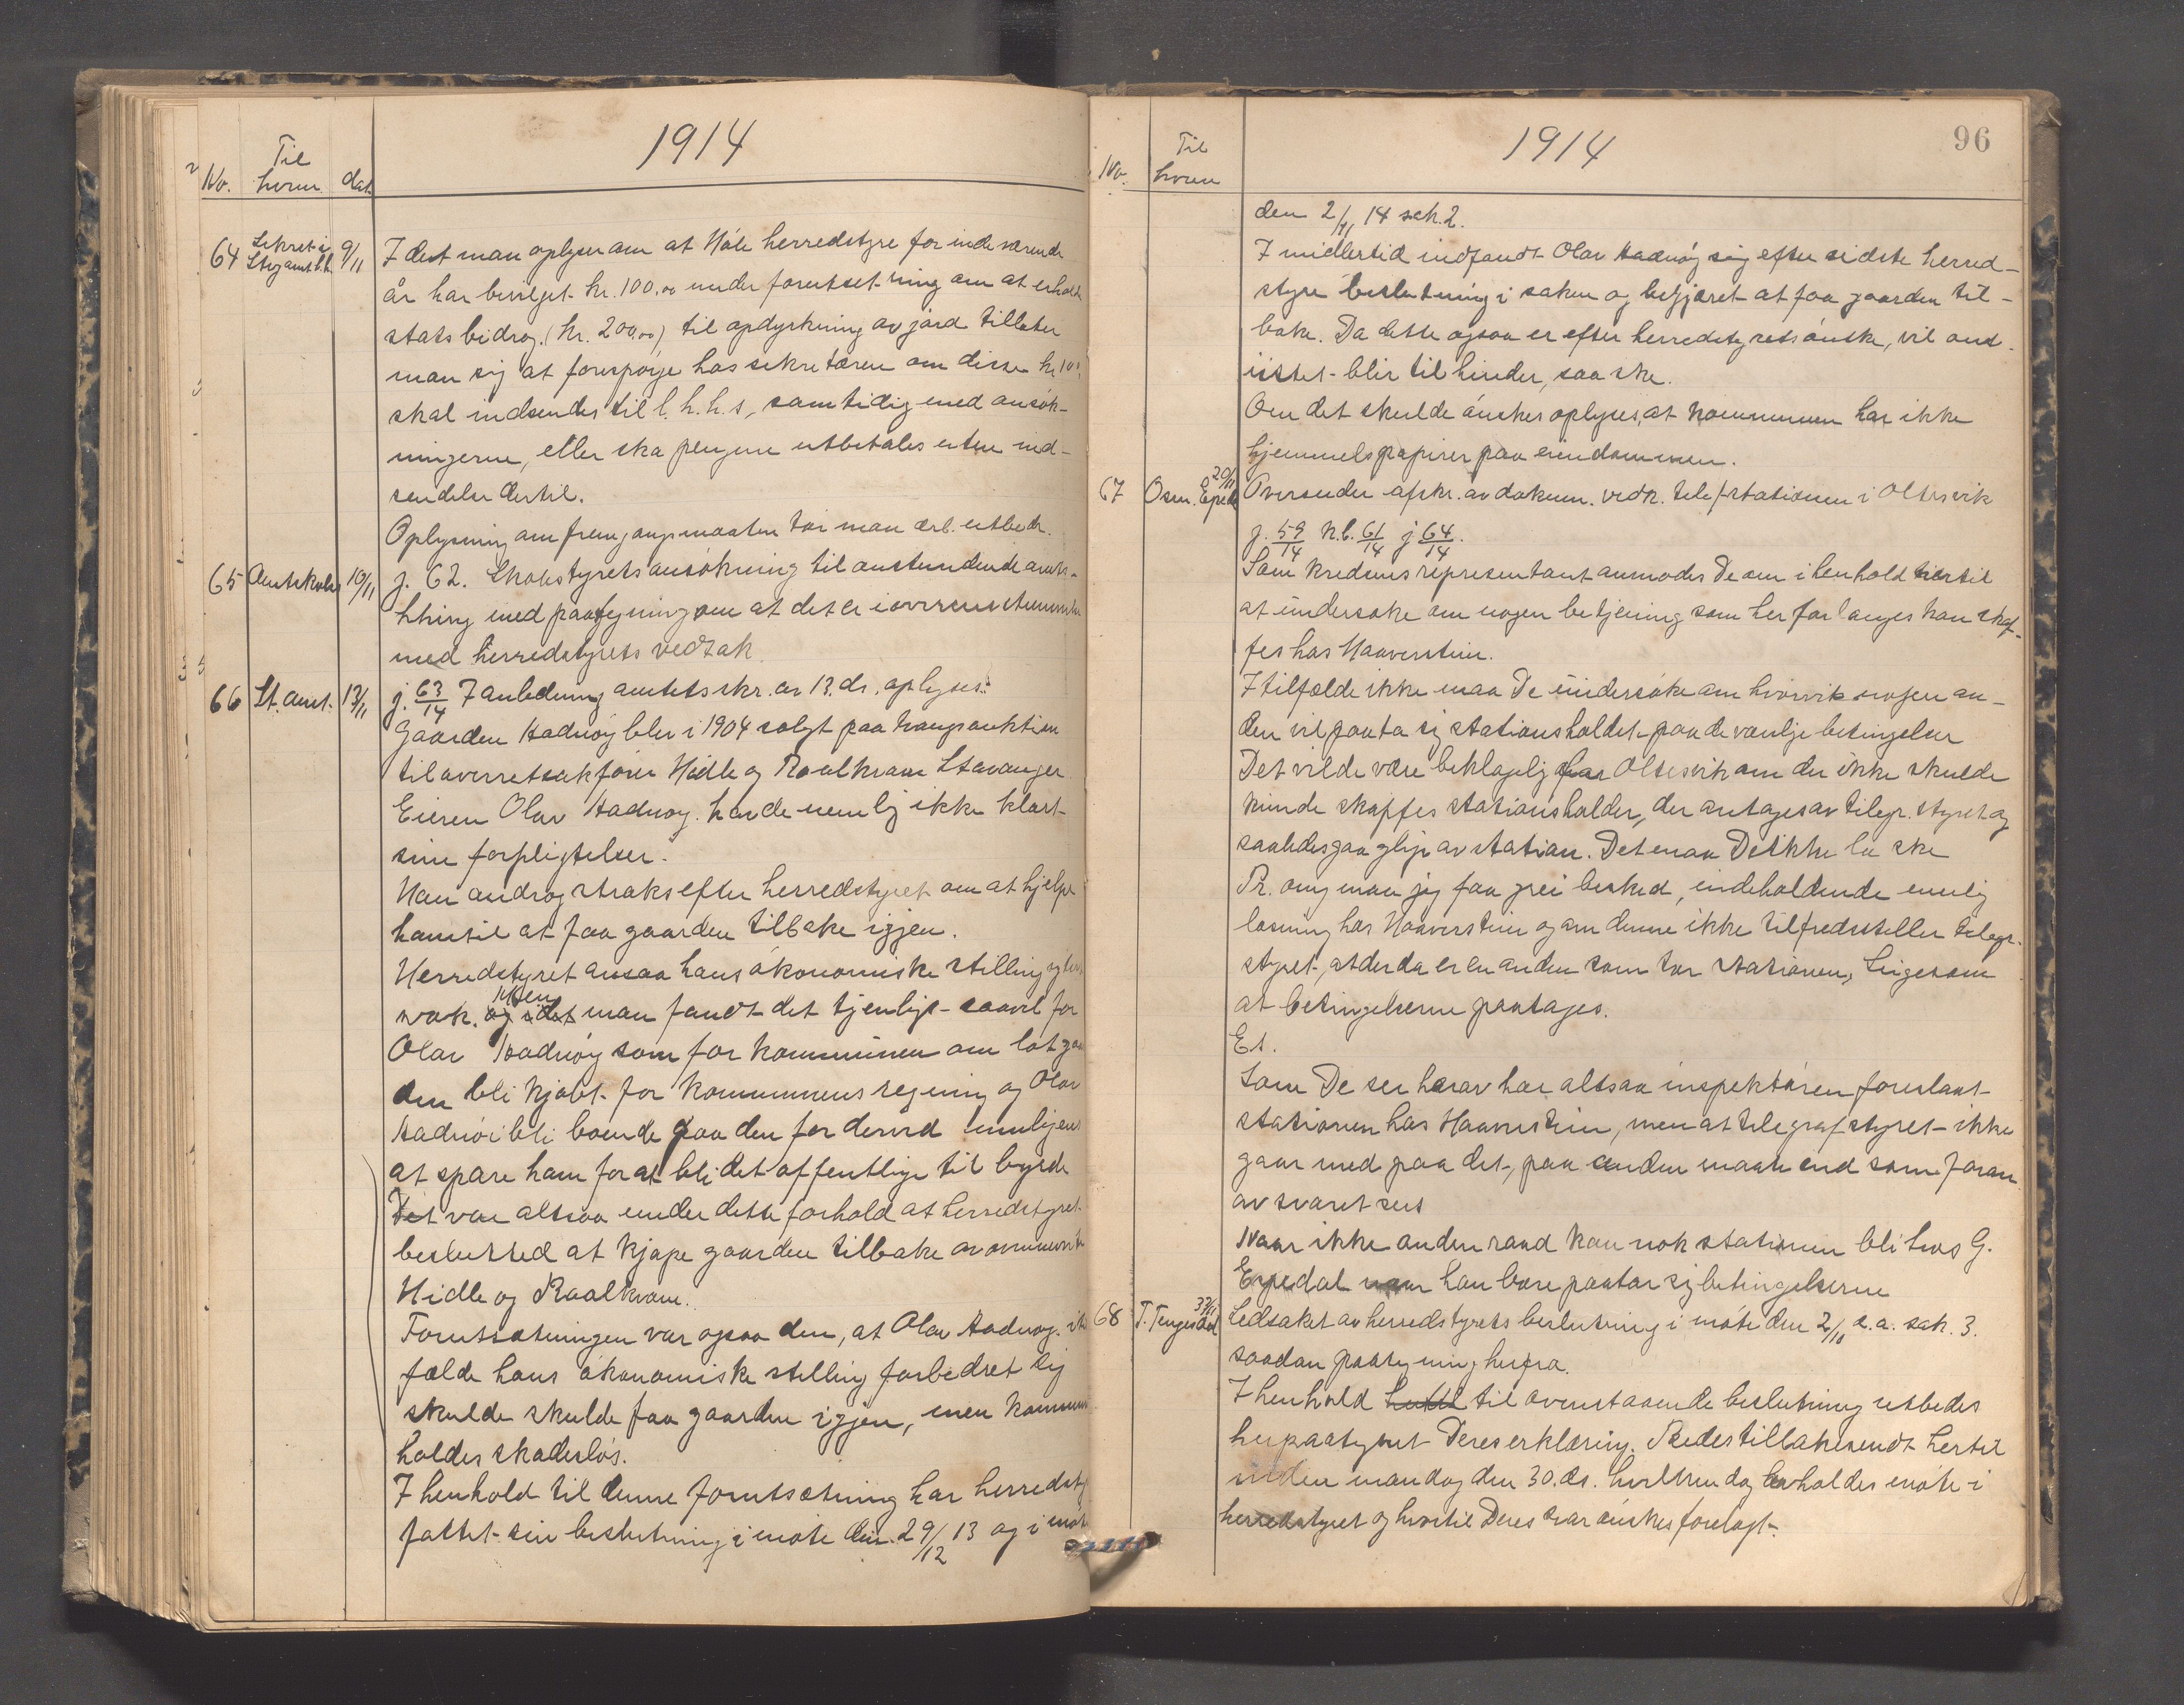 1914
No. Til hvem dat.
64 Sekret. i Stvg amt l.h. 9/11 I det man oplyser om at Høle herredstyre for indeværende
år har bevilget kr. 100,00 under forutsetning om at erholde
statsbidrag (kr. 200,00) til opdyrkning av jord tillater
man sig at forespørge hos sekretæren om disse kr 100,
skal indsendes til l.h.h.s, samtidig med ansøk-
ningerne, eller ska pengene utbetales uten ind-
sendelse dertil.
Oplysning om fremgangsmaaten tør man ærb. utbede.
65 Amtskoles 10/11 j. 62. Skolestyrets ansøkning til anstundende amts-
thing med paategning om at det er i overensstemmelse
med herredstyrets vedtak.
66 St. amt. 13/11 j. 63/14 I anledning amtets skr. av 13. ds. oplyses:
Gaarden Aadnøy blev i 1904 solgt paa tvangsauktion
til overretsakfører Hidle og Roalkvam Stavanger
Eieren Olav Aadnøy. havde nemlig ikke klart
sine forpligtelser.
Han androg straks efter herredstyret om at hjelpe
ham til at faa gaarden tilbake igjen.
Herredstyret ansaa hans økonomiske stilling
svak. Men man fandt det tjenligt saavel for
Olav Aadnøy som for kommunen om lot gaar
den bli kjøbt for kommunens regning og Olav
Aadnøi bli boende paa den for derved muligens
at spare ham for at bli det offentlige til byrde
Det var altsaa under dette forhold at herredstyret
besluttet at kjøpe gaarden tilbake av ovennevnte
Hidle og Roalkvam.
Forutsætningen var ogsaa den, at Olav Aadnøy. i til
fælde hans økonomiske stilling forbedret sig
skulde skulde faa gaarden igjen, men kommunen
holdes skadesløs.
I henhold til denne forutsætning har herredsty
fattet sin beslutning i møte den. 29/12 13 og i møte
1914
96
No. Til hvem
den 2/11 14 sak. 2.
I midlertid indfandt Olav Aadnøy sig efter sidste herred-
styre beslutning i saken og begjæret at faa gaarden til-
bake. Da dette ogsaa er efter herredstyrets ønske, vil om
intet blir til hinder, saa ske.
Om det skulde ønskes oplyses, at kommunen har ikke
hjemmelspapirer paa eiendommen.
67 Osm. Espedal 20/11 Oversender afskr. av dokum. vedk. telefstationen i Oltesvik
j. 59/14 k.b. 61/14 j 64/14.
Som kredsens representant anmodes De om i henhold hertil
at undersøke om nogen betjening som her forlanges kan skaf-
fes hos Haaverstein.
I tilfælde ikke maa De undersøke om hvorvik nogen an-
den vil paata sig stationsholdet paa de vanlige betingelser
Det vilde være beklagelig for Oltesvik om der ikke skulde
kunde skaffes stationsholder, der antages av telegr. styret og
saaledes gaa glip av station. Det maa De ikke la ske
Pr. omg maa jeg faa grei besked, indeholdende mulig
løsning hos Haaverstein og om denne ikke tilfredsstiller telegr.
styret, at der da er en anden som tar stationen, ligesom
at betingelserne paatages.
Es.
Som De ser herav har altsaa inspektøren foreslaat
stationen hos Haaverstein, men at telegrafstyret ikke
gaar med paa det, paa anden maate end som foran
av svaret sees
Naar ikke anden raad kan nok stationen bli hos G.
Espedal naar han bare paatar sig betingelserne
68 T. Tengesdal Ledsaket av herredstyrets beslutning i møte den 2/11 s.a. sak. 3.
saadan paategning herfra.
I henhold til ovenstaaende beslutning utbedes
herpaategnet Deres erklæring. Bedes tilbakesendt hertil
inden mandag den 30. ds. hvilken dag avholdes møte i
herredstyret og hvortil Deres svar ønskes forelagt.